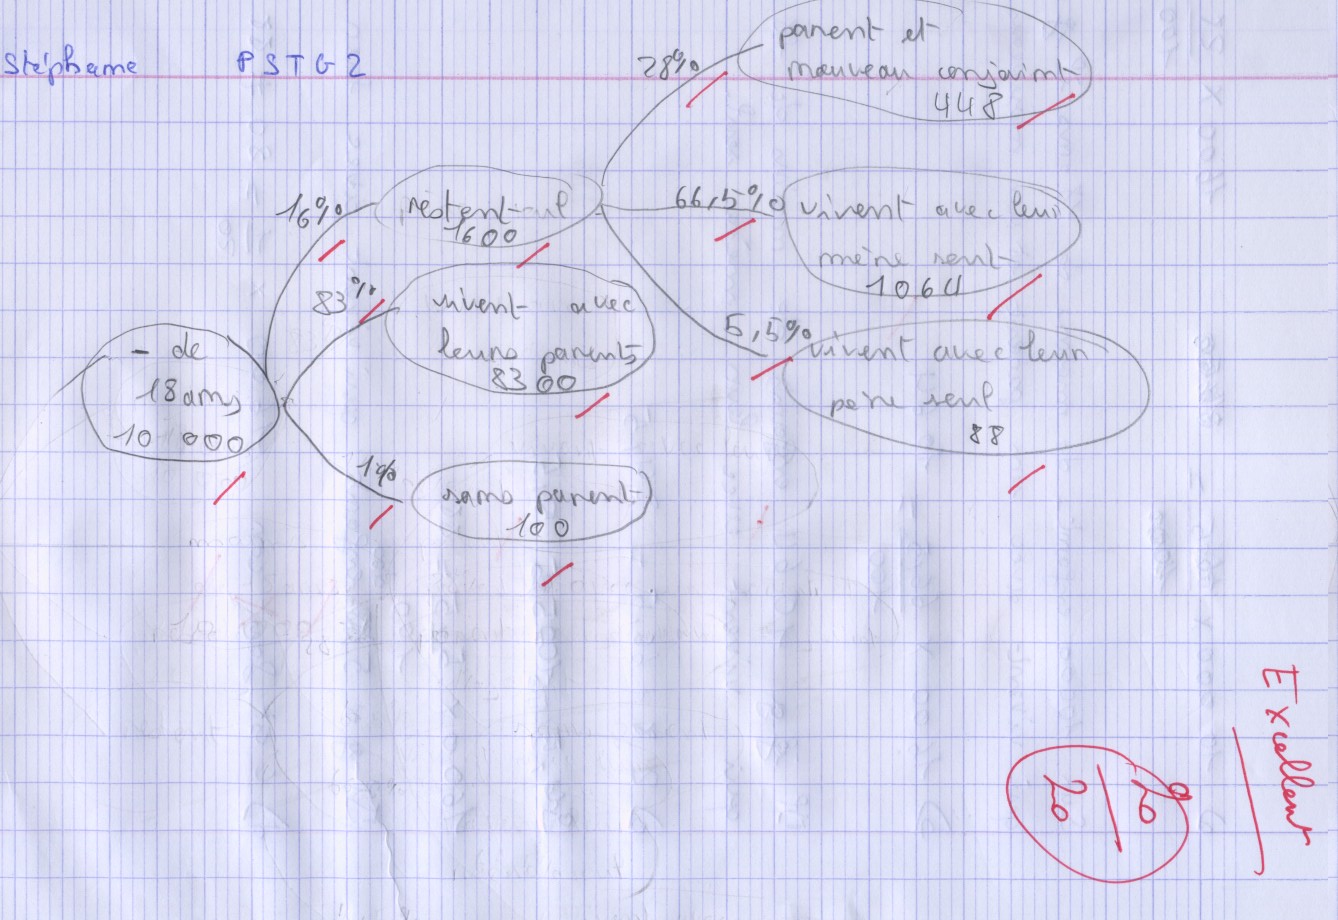 Stéphane PSTG2
28%
parent et
nouveau conjoint
448
16%
restent-ul
1600
66,5%
vivent avec leur
mère seul
1064
83%
vivent avec
leurs parents
8300
5,5%
vivent avec leur
père seul
88
- de
18 ans
10 000
1%
sans parent
100
Excellent
20/20